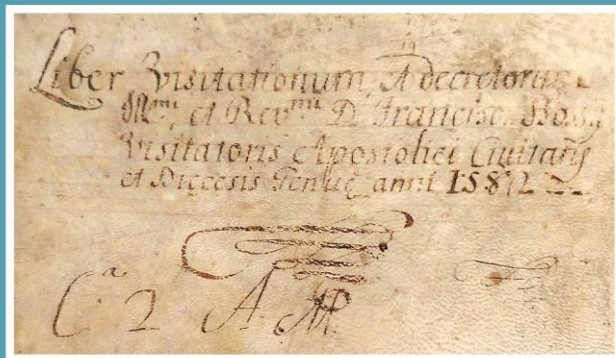 Liber Visitationum, et decretorum
Ill.mi et Rev.mi D. Francisci Bossij
Visitatoris Apostolici Civitatis
et Dięcesis Genuę anni 1582
C.a 2 A